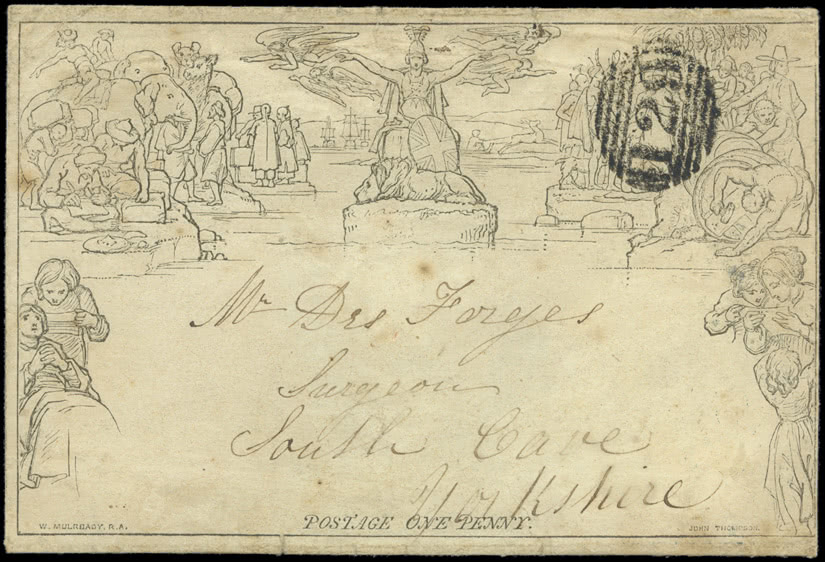 129
Mr Des Forges
Surgeon
South Cave
Yorkshire
POSTAGE ONE PENNY.
W. MULREADY, R.A.
JOHN THOMPSON